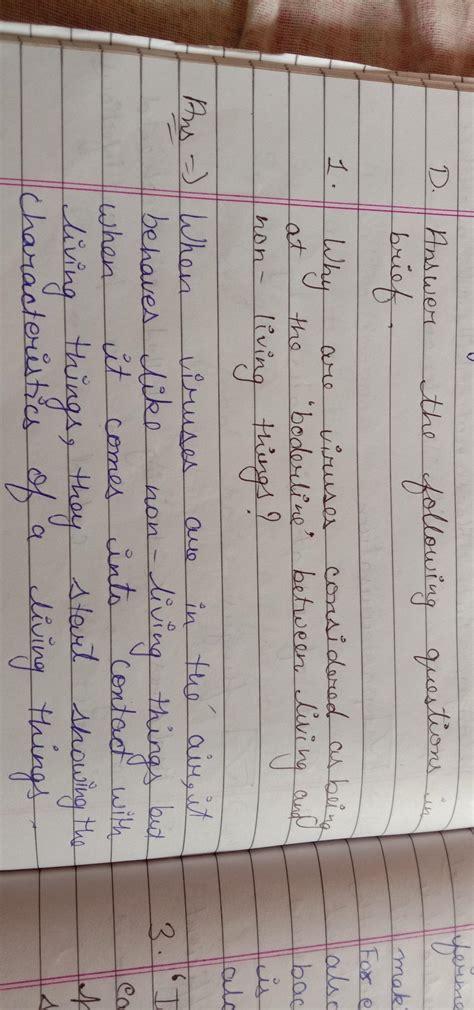 D. Answer the following questions in
brief.
1. Why are viruses considered as being
at the 'boderline' between living and
non-living things?
Ans => When viruses are in the air, it
behaves like non-living things but
when it comes into contact with
living things, they start showing the
characteristics of a living things.
maki
For e
also
bac
is
alc
3. "I
ca